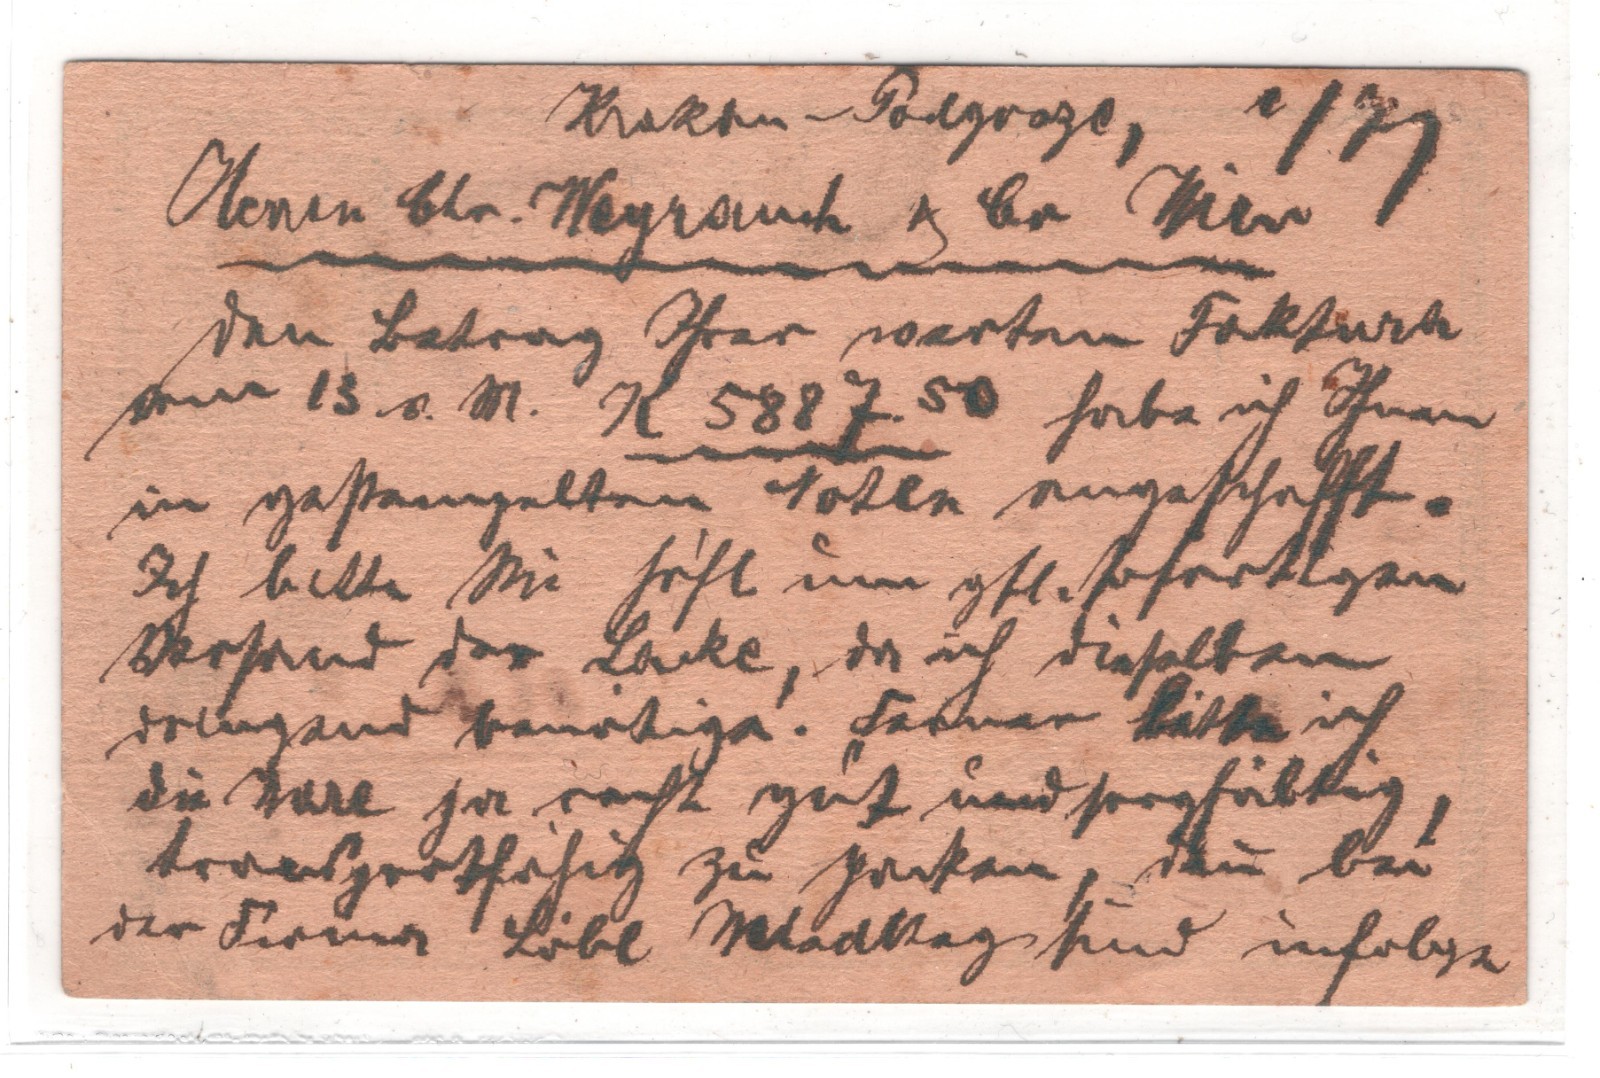 Krakau-Podgorze,
Herren Chr. Weyrauch & Co Wien
Den Betrag Ihrer werten Faktura
vom 13 v. M. K 5887.50 habe ich Ihnen
in gestempelten Noten angeschafft.
Ich bitte Sie höfl um gfl. sofortigen
Versand der Lacke, da ich dieselben
dringend benötige. Ferner bitte ich
die Ware ja recht gut und sorgfältig,
transportfähig zu packen, denn bei
der Firma Löbl sind infolge